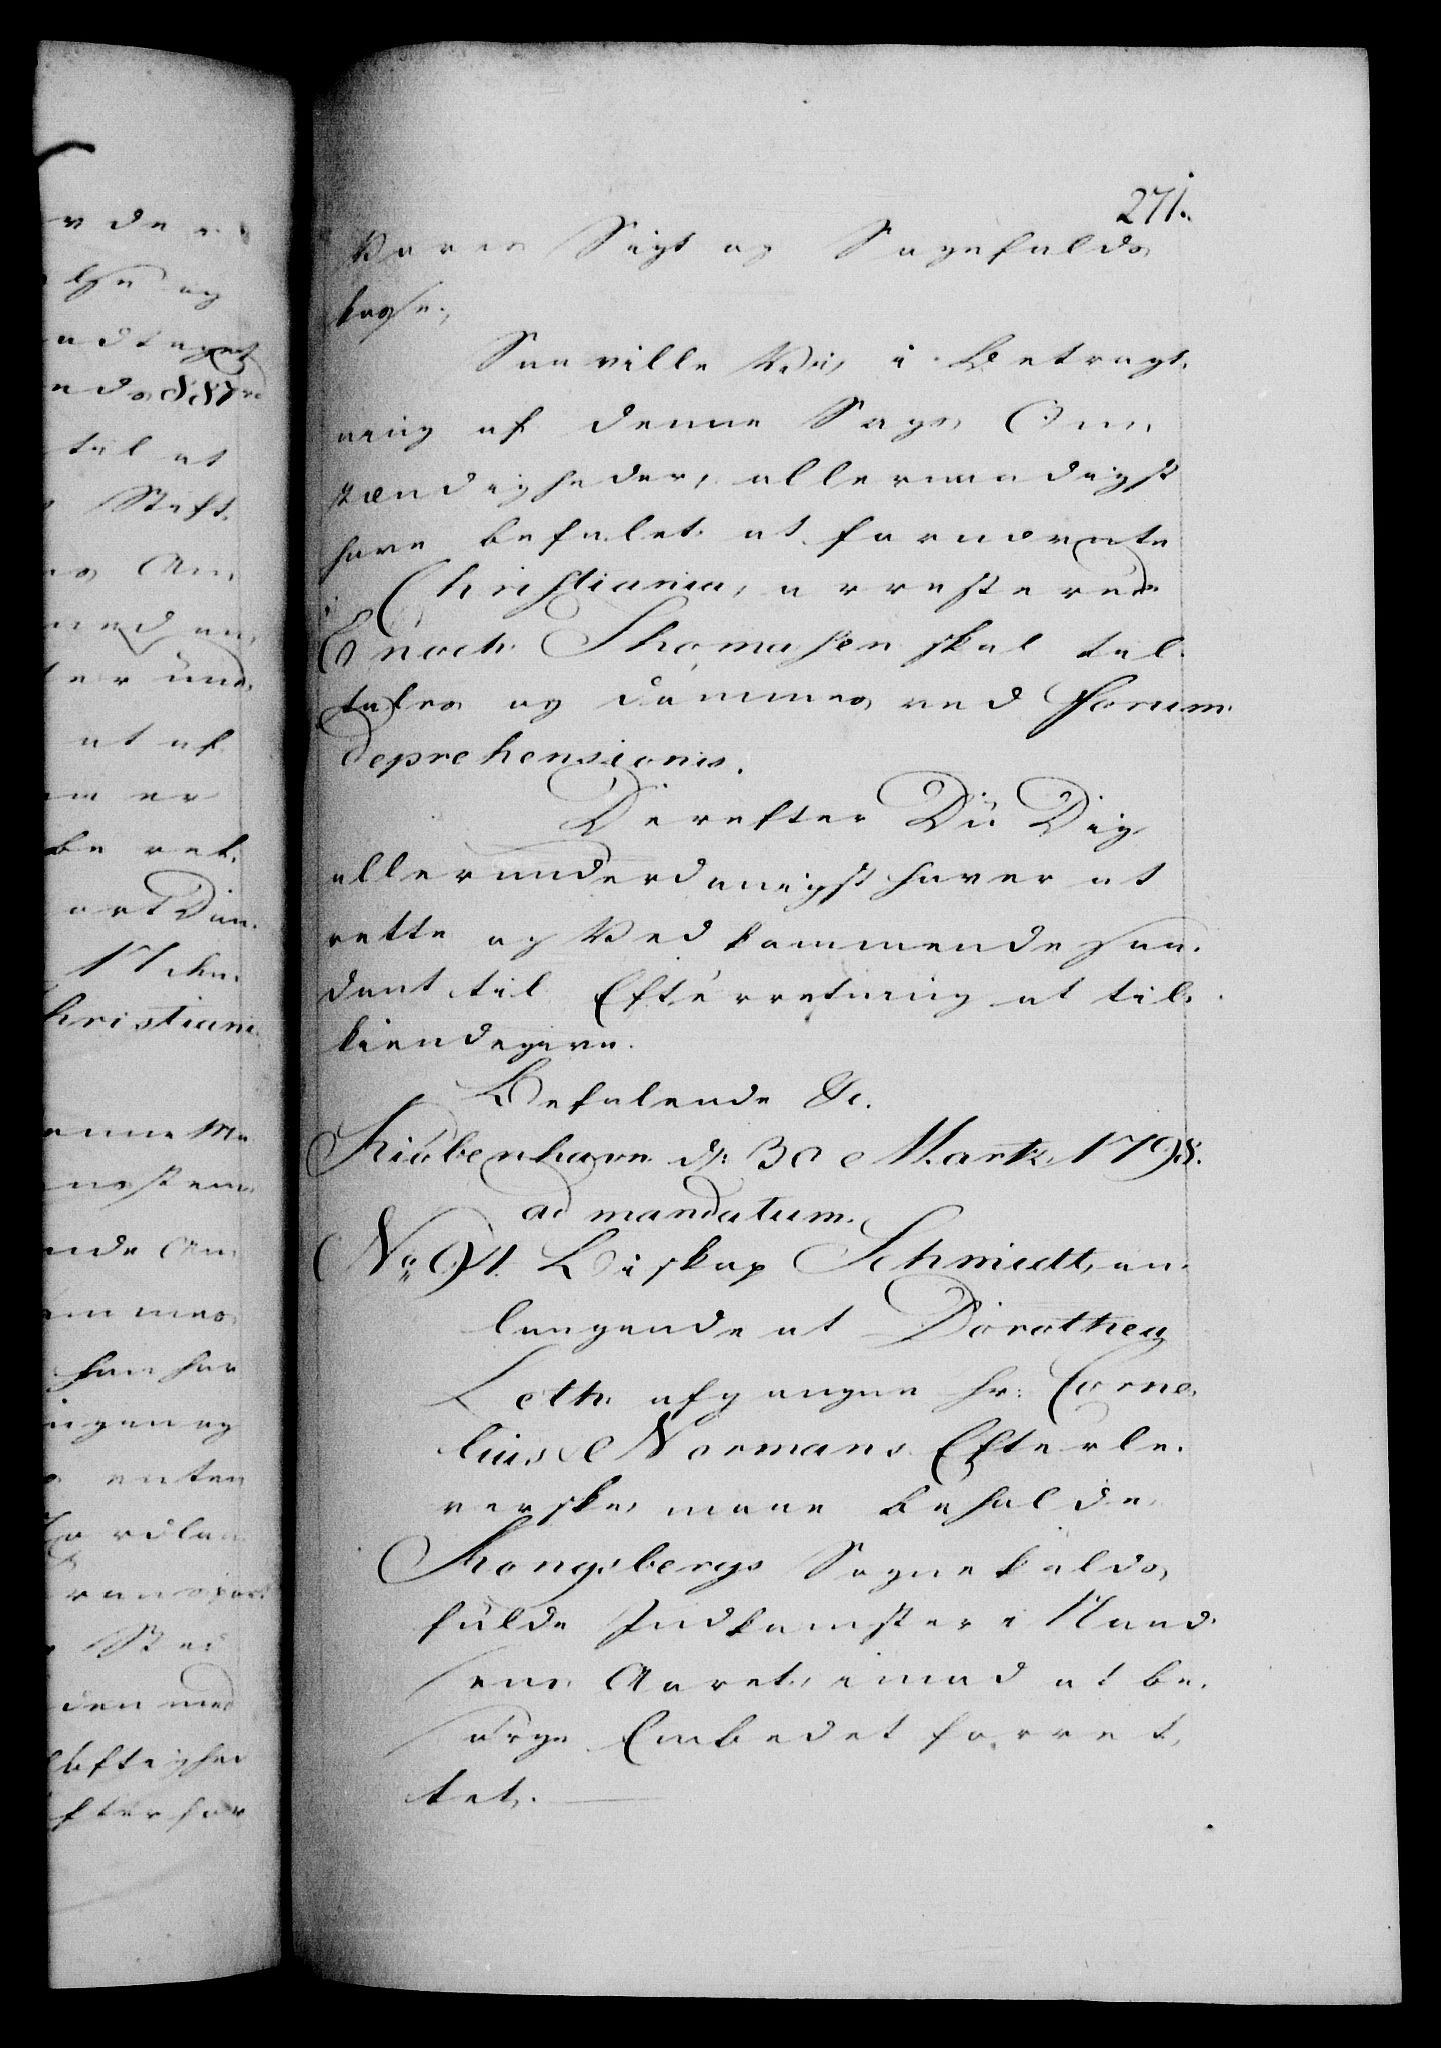 271.
Vores Sigt og Sagefalds
kasse.
Saa ville Vi, i Betragt-
ning af denne Sags Om-
stændigheder, allernaadigst
have befalet at fornævnte
i Christiania, arresterede
Enoch Thomasen skal til-
tales og dømmes ved Forum
deprehensionis.
Derefter Du Dig
allerunderdanigst haver at
rette og Vedkommende saa-
dant til Efterretning at til-
kiendegive.
Befalende &c.
Kiöbenhavn d: 30 Marti 1798.
ad mandatum.
No 91. Biskop Schmidt, an-
langende at Dorothea
Leth afgangne Hr: Corne-
lius Normans Efterle-
verske, maae beholde
Kongsbergs Sognekalds
fulde Indkomster i Naad-
sens Aaret, imod at be-
sørge Embedet forret-
tet.